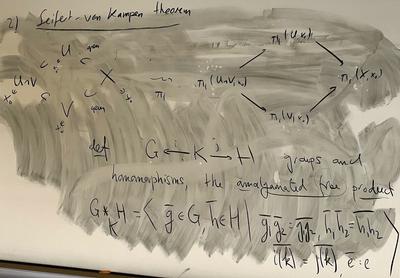 2) Seifert-van Kampen theorem
U open π₁(U,x₀)
x₀ ∈ U∩V X ⇝ π₁ π₁(U∩V,x₀) π₁(X,x₀)
V open π₁(V,x₀)
def G ←i K →j H groups and
homomorphisms, the amalgamated free product
G *_K H = ⟨ g̅ ∈ G, h̅ ∈ H | g̅₁g̅₂ = \overline{g₁g₂}, h̅₁h̅₂ = \overline{h₁h₂}
\overline{i(k)} = \overline{j(k)} e̅ = e ⟩